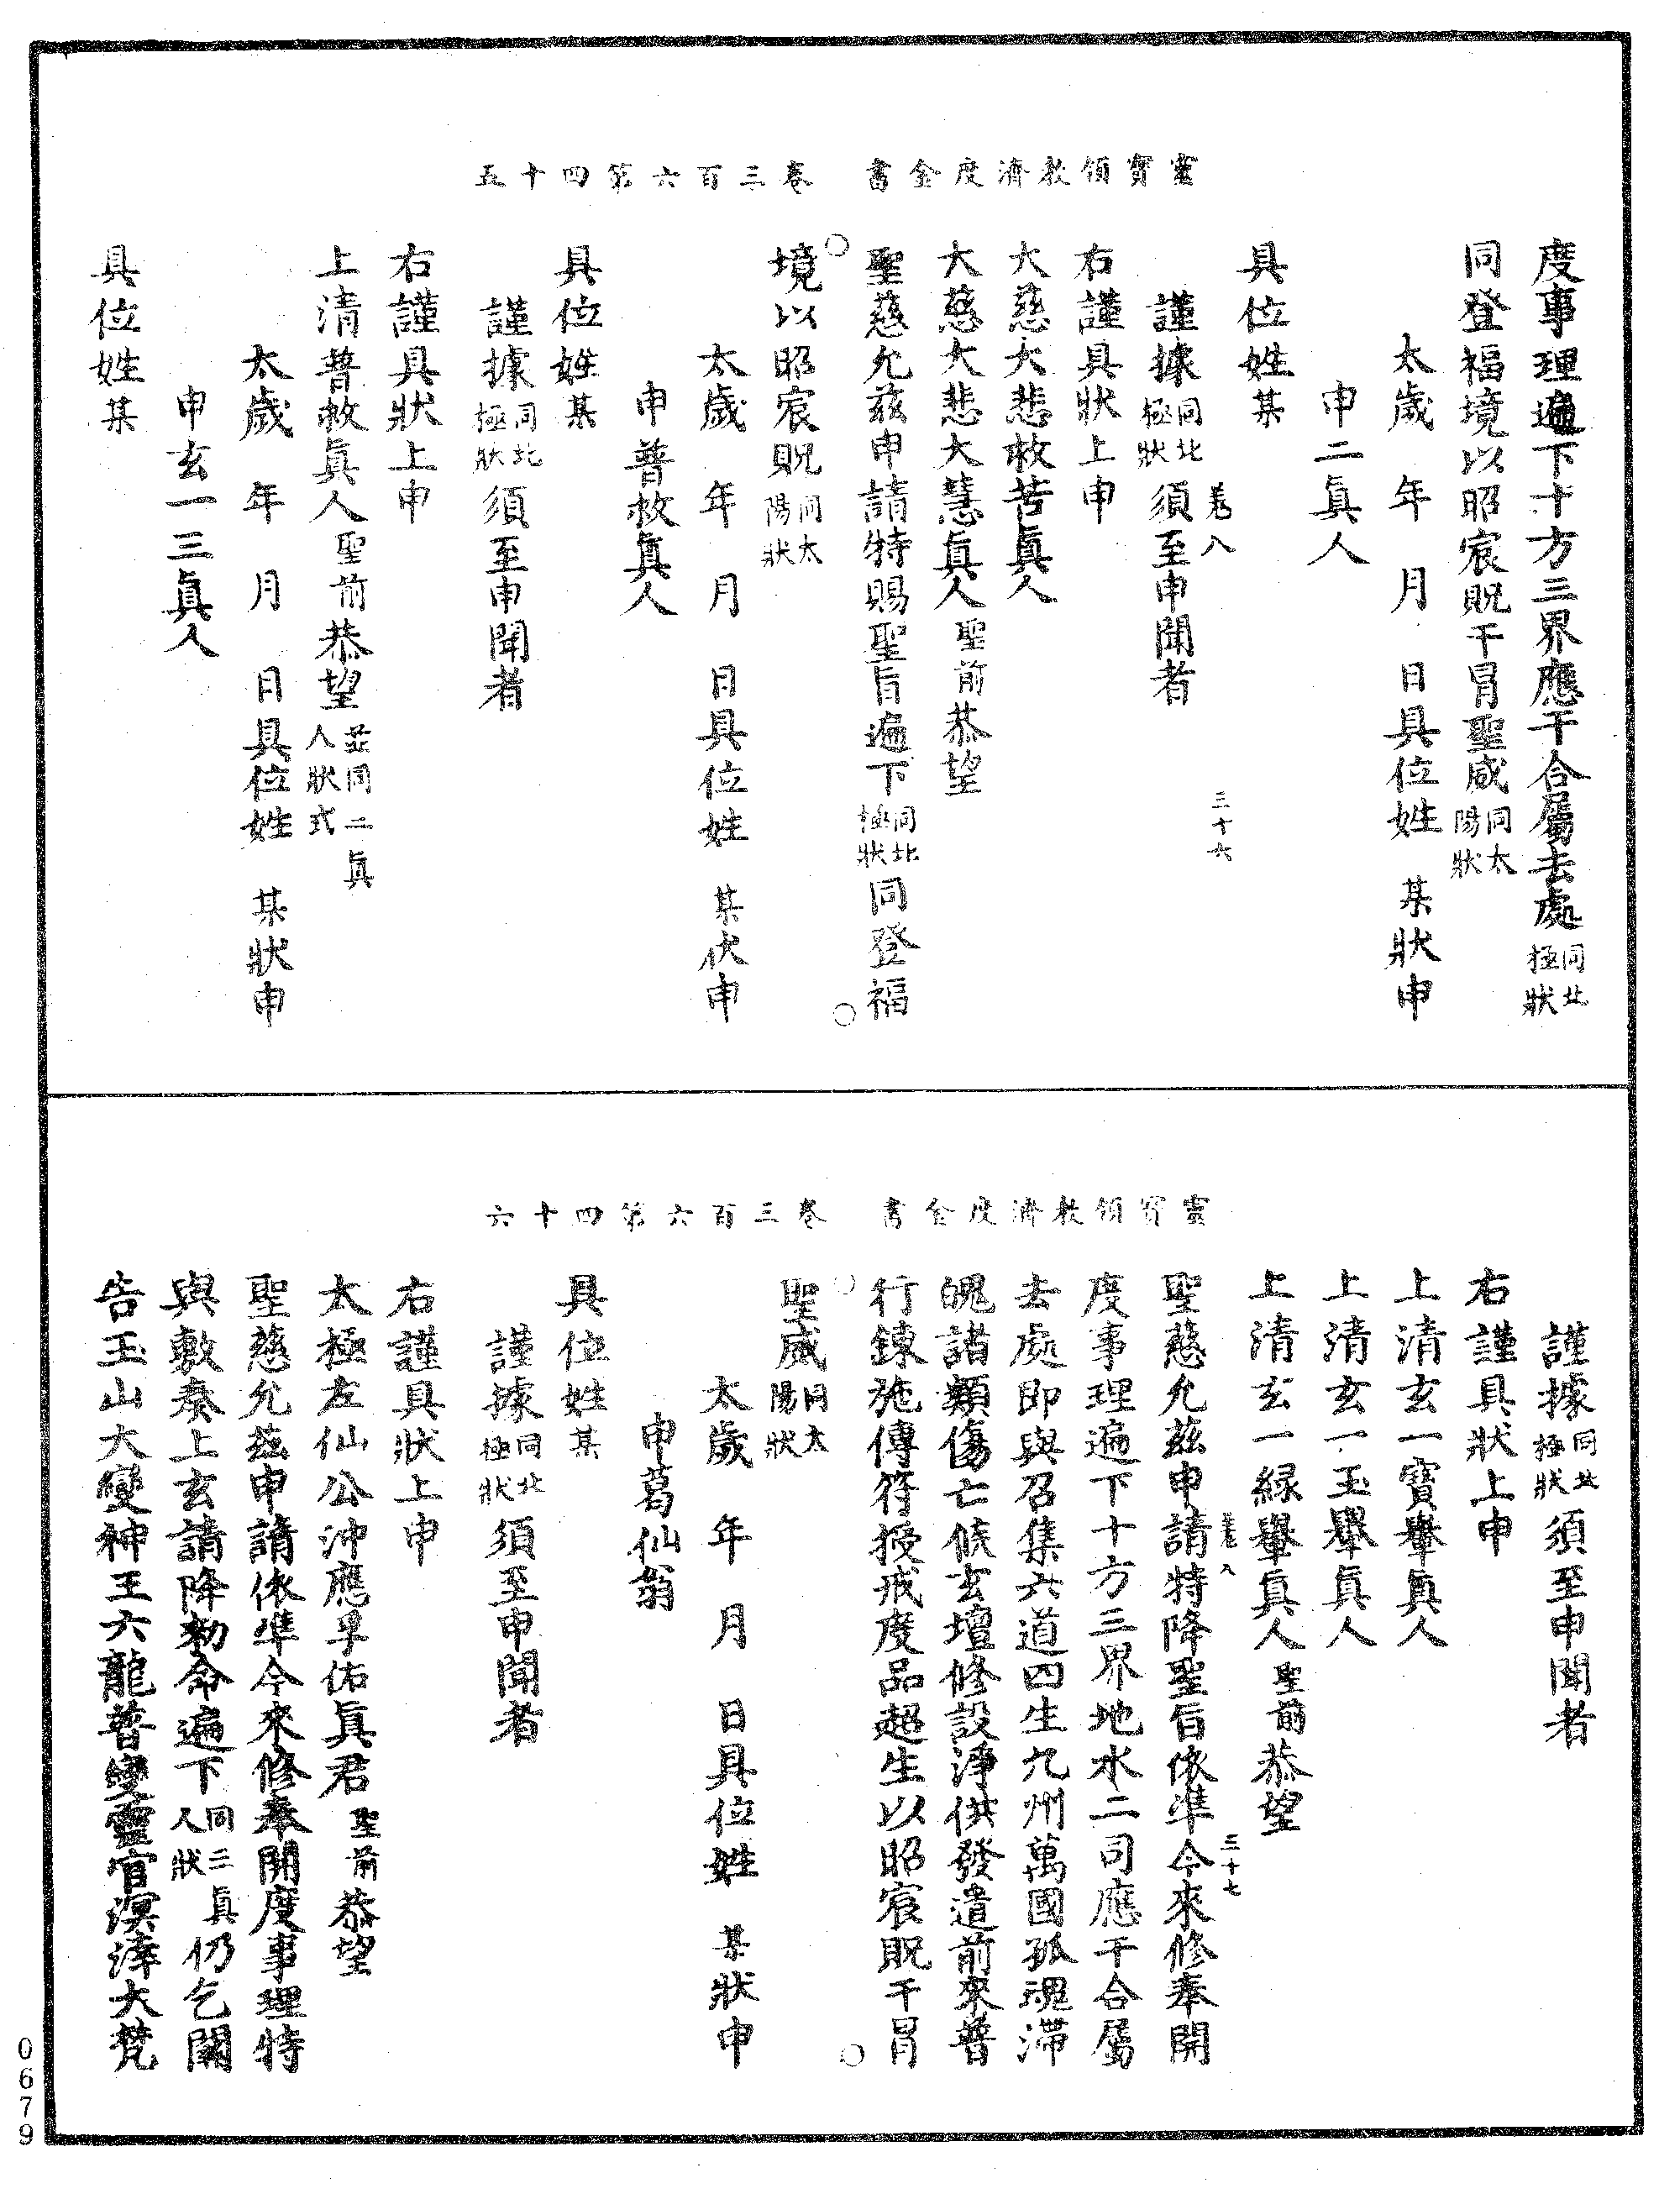 靈寶領教濟度金書　卷三百六第四十五
度事理遍下十方三界應干合屬去處同北極狀
同登福境以昭宸貺干冒聖威同太陽狀
太歲　年　月　日具位姓　某狀申
申二眞人
具位姓某
卷八　三十六
謹據同北極狀須至申聞者
右謹具狀上申
大慈大悲救苦眞人
大慈大悲大慧眞人聖前恭望
聖慈允茲申請特賜聖旨遍下同北極狀同登福
境以昭宸貺同太陽狀
太歲　年　月　日具位姓　某伏申
申普救眞人
具位姓某
謹據同北極狀須至申聞者
右謹具狀上申
上清普救眞人聖前恭望並同二眞人狀式
太歲　年　月　日具位姓　某狀申
申玄一三眞人
具位姓某
靈寶領教濟度金書　卷三百六第四十六
謹據同北極狀須至申聞者
右謹具狀上申
上清玄一寶轝眞人
上清玄一玉轝眞人
上清玄一綠轝眞人聖前恭望
卷八　三十七
聖慈允茲申請特降聖旨依準今來修奉開
度事理遍下十方三界地水二司應干合屬
去處即與召集六道四生九州萬國孤魂滯
魄諸類傷亡候玄壇修設淨供發遣前來普
行鍊施傳符授戒度品超生以昭宸貺干冒
聖威同太陽狀
太歲　年　月　日具位姓　某狀申
申葛仙翁
具位姓某
謹據同北極狀須至申聞者
右謹具狀上申
太極左仙公沖應孚佑眞君聖前恭望
聖慈允茲申請依準今來修奉開度事理特
與敷奏上玄請降勑命遍下同三眞人狀仍乞關
告玉山大變神王六龍普變靈官溟涬大梵
0679